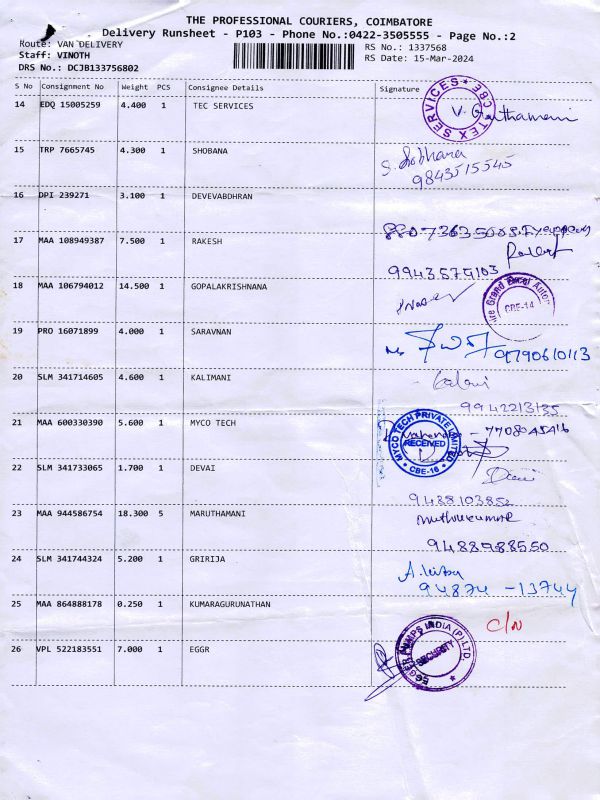 THE PROFESSIONAL COURIERS, COIMBATORE
Delivery Runsheet - P103 - Phone No.:0422-3505555 - Page No.:2
Route: VAN DELIVERY
RS No.: 1337568
Staff: VINOTH
RS Date: 15-Mar-2024
DRS No.: DCJB133756802
S No Consignment No Weight PCS Consignee Details Signature
14 EDQ 15005259 4.400 1 TEC SERVICES
TEX SERVICES * CBE *
15 TRP 7665745 4.300 1 SHOBANA
S. Sobhana
9843515545
16 DPI 239271 3.100 1 DEVEVABDHRAN
8807363500
17 MAA 108949387 7.500 1 RAKESH
9943579103
18 MAA 106794012 14.500 1 GOPALAKRISHNANA
CBE-14
19 PRO 16071899 4.000 1 SARAVNAN
9790610113
20 SLM 341714605 4.600 1 KALIMANI
Kalani
9942213135
21 MAA 600330390 5.600 1 MYCO TECH
MYCO TECH PRIVATE LIMITED
RECEIVED
* CBE-16 *
- 7708245416
22 SLM 341733065 1.700 1 DEVAI
9488103852
23 MAA 944586754 18.300 5 MARUTHAMANI
muthukumar
9488988550
24 SLM 341744324 5.200 1 GRIRIJA
94874 - 13744
25 MAA 864888178 0.250 1 KUMARAGURUNATHAN
C/N
26 VPL 522183551 7.000 1 EGGR
EGGER PUMPS INDIA (P) LTD.
SECURITY